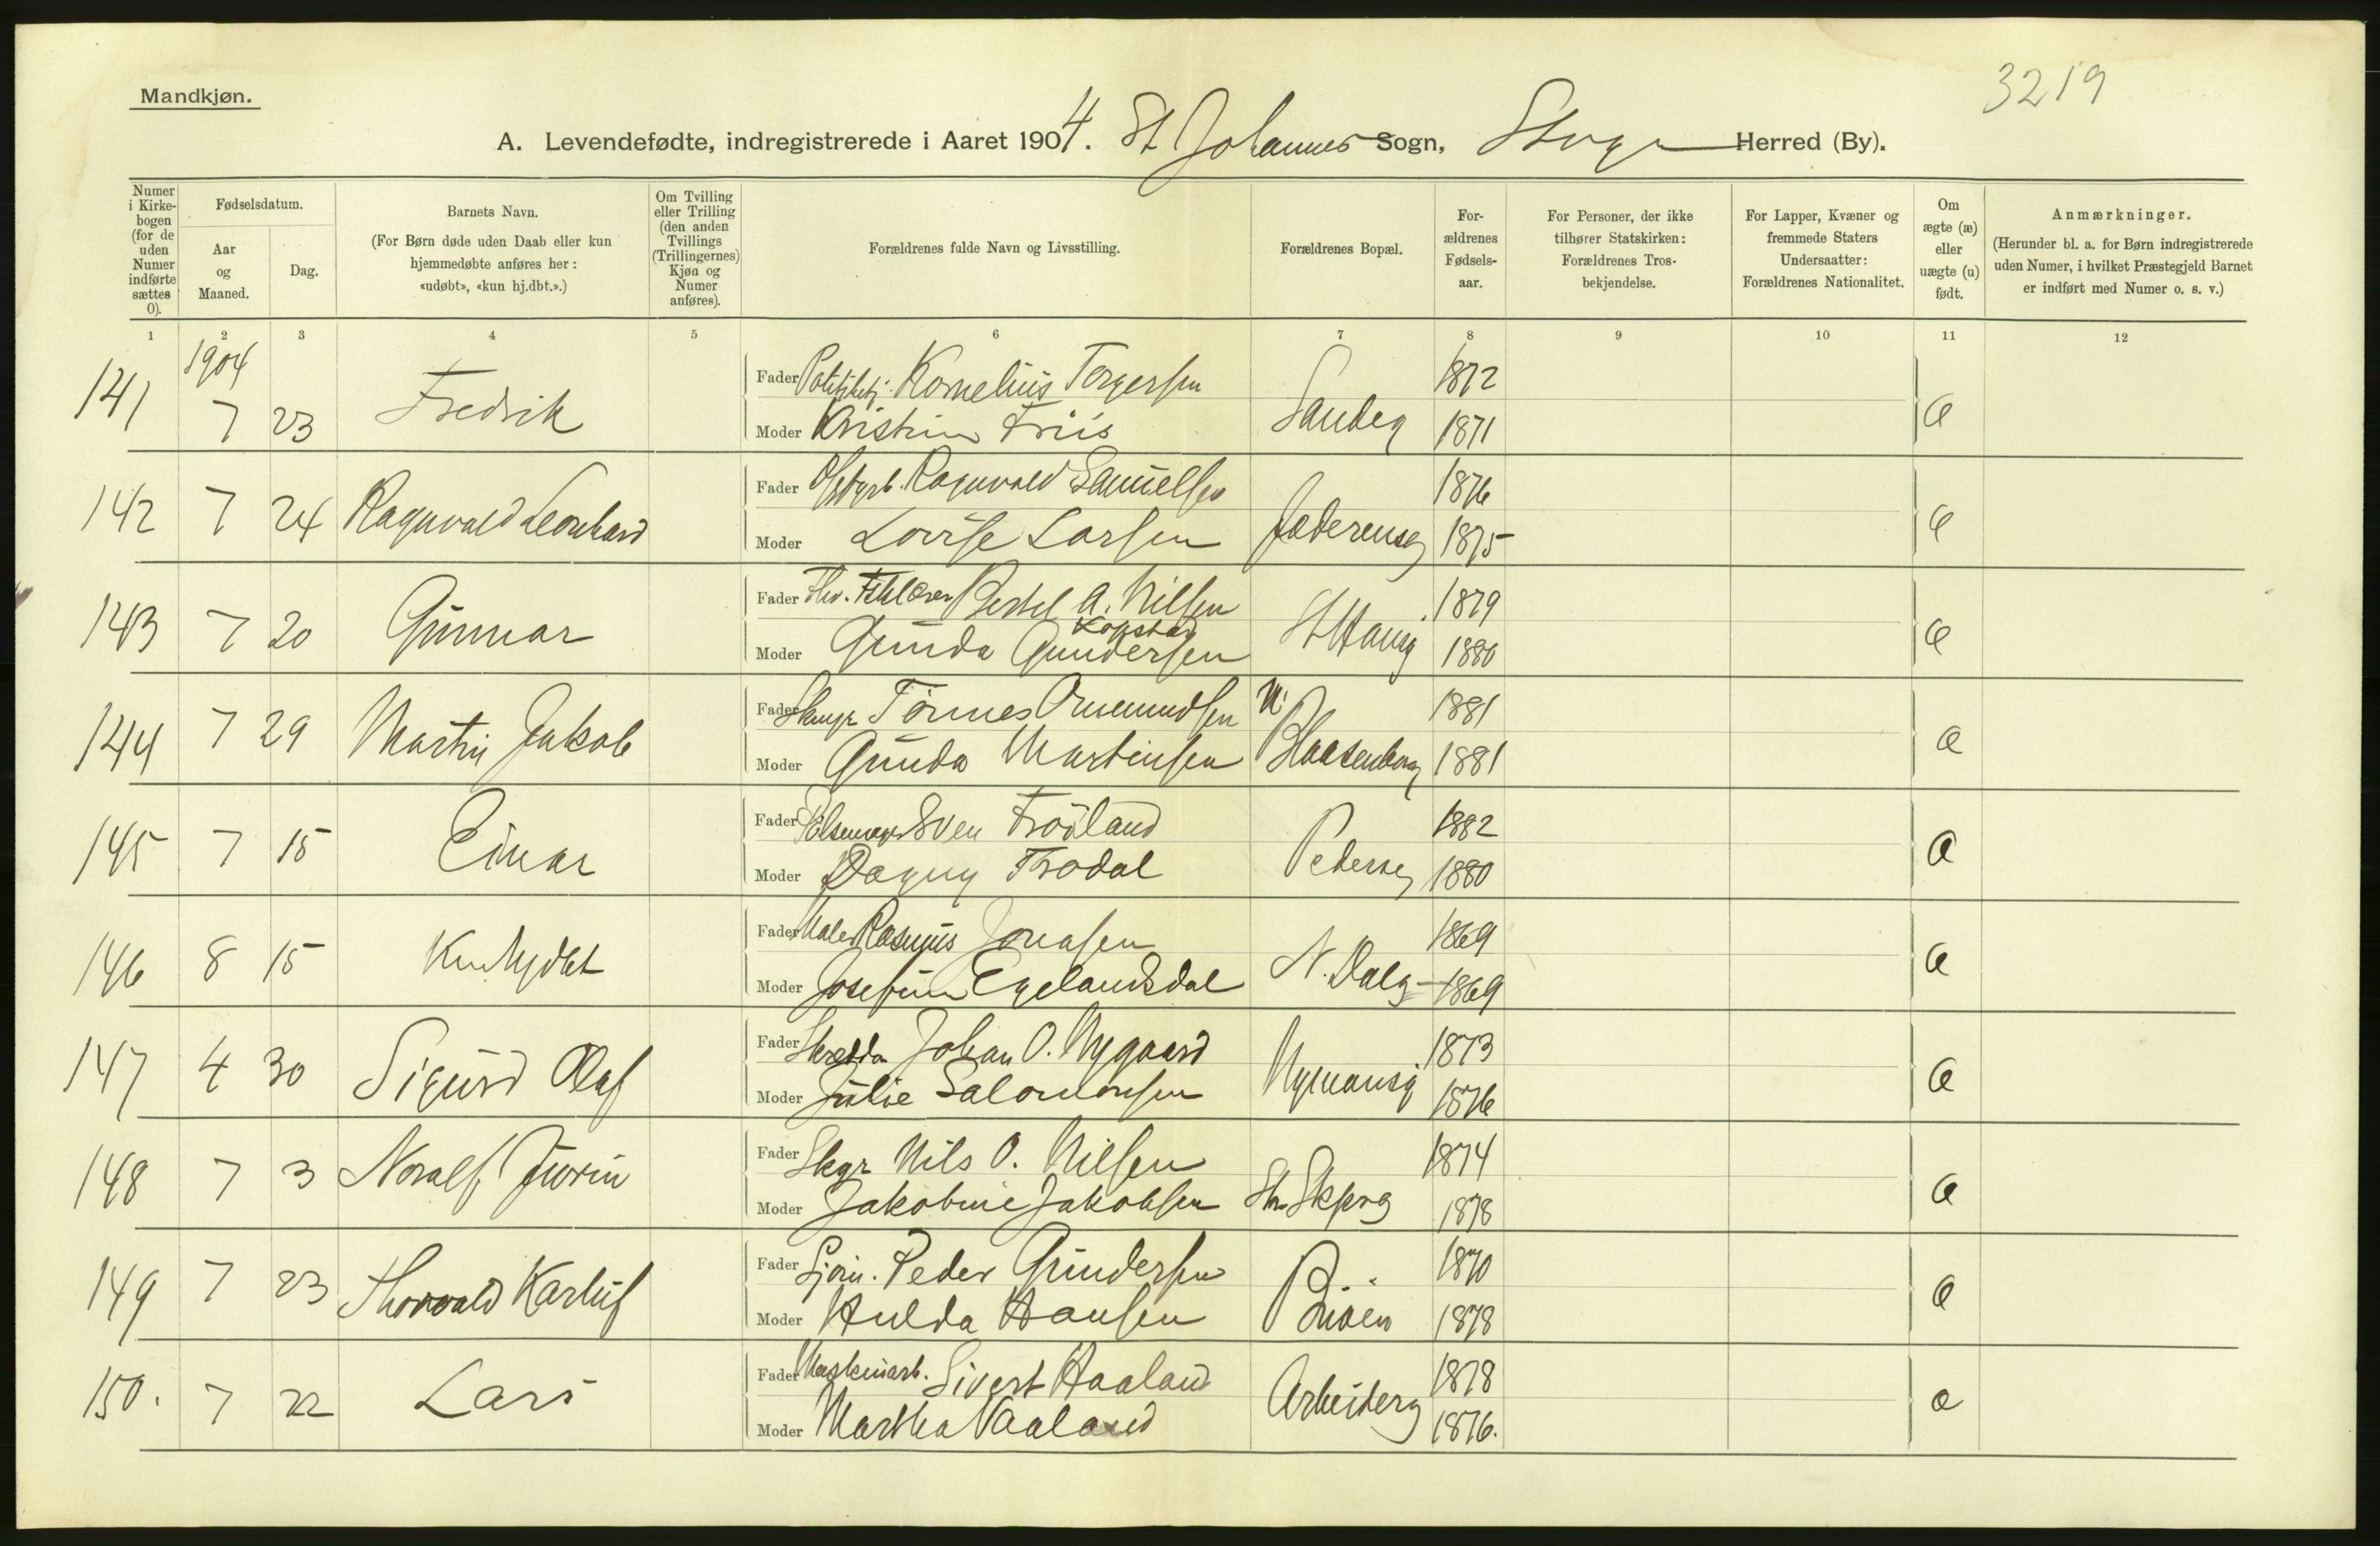 3219
Mandkjøn.
A. Levendefødte, indregistrerede i Aaret 1904. St Johannes Sogn, Stvgr Herred (By).
Numer i Kirkebogen (for de uden Numer indførte sættes 0).
Fødselsdatum.
Aar og Maaned.
Dag.
Barnets Navn.
(For Børn døde uden Daab eller kun hjemmedøbte anføres her: «udøbt», «kun hj.dbt.».)
Om Tvilling eller Trilling (den anden Tvillings (Trillingernes) Kjøn og Numer anføres).
Forældrenes fulde Navn og Livsstilling.
Forældrenes Bopæl.
Forældrenes Fødselsaar.
For Personer, der ikke tilhører Statskirken: Forældrenes Trosbekjendelse.
For Lapper, Kvæner og fremmede Staters Undersaatter: Forældrenes Nationalitet.
Om ægte (æ) eller uægte (u) født.
Anmærkninger.
(Herunder bl. a. for Børn indregistrerede uden Numer, i hvilket Præstegjeld Barnet er indført med Numer o. s. v.)
1 2 3 4 5 6 7 8 9 10 11 12
1904
Fader Kornelius Torgersen 1872
141 7 23 Fredrik Sandeg æ
Moder Kristine Friis 1871
Fader Ragnvald Samuelsen 1876
142 7 24 Ragnvald Leonhard Jæderensg æ
Moder Lovise Larsen 1875
Fader Bertel A. Nilsen 1879
143 7 20 Gunnar St Hansg æ
Kopstad
Moder Gunda Gundersen 1880
Fader Skmgr Tønnes Omemundsen 1881
144 7 29 Martin Jakob N. Blaasenborg æ
Moder Gunda Martinsen 1881
Fader Pølsemagr Sven Frøiland 1882
145 7 15 Einar Pederg æ
Moder Dagny Trodal 1880
Fader Maler Rasmus Jonasen 1869
146 8 15 Kun hjdbt N. Dalg æ
Moder Josefine Egelandsdal 1869
Fader Skrædder Johan O. Nygaard 1873
147 4 30 Sigurd Olaf Nymansg æ
Moder Julie Salomonsen 1876
Fader Nils O. Nilsen 1874
148 7 3 Noralf Jurin æ
Moder Jakobine Jakobsen 1878
Fader Sjøm. Peder Gundersen 1870
149 7 23 Thorvald Karluf æ
Moder Hulda Hansen 1878
Fader Maskinarb. Sivert Haaland 1878
150. 7 22 Lars Arbeiderg æ
Moder Martha Vaaland 1876.